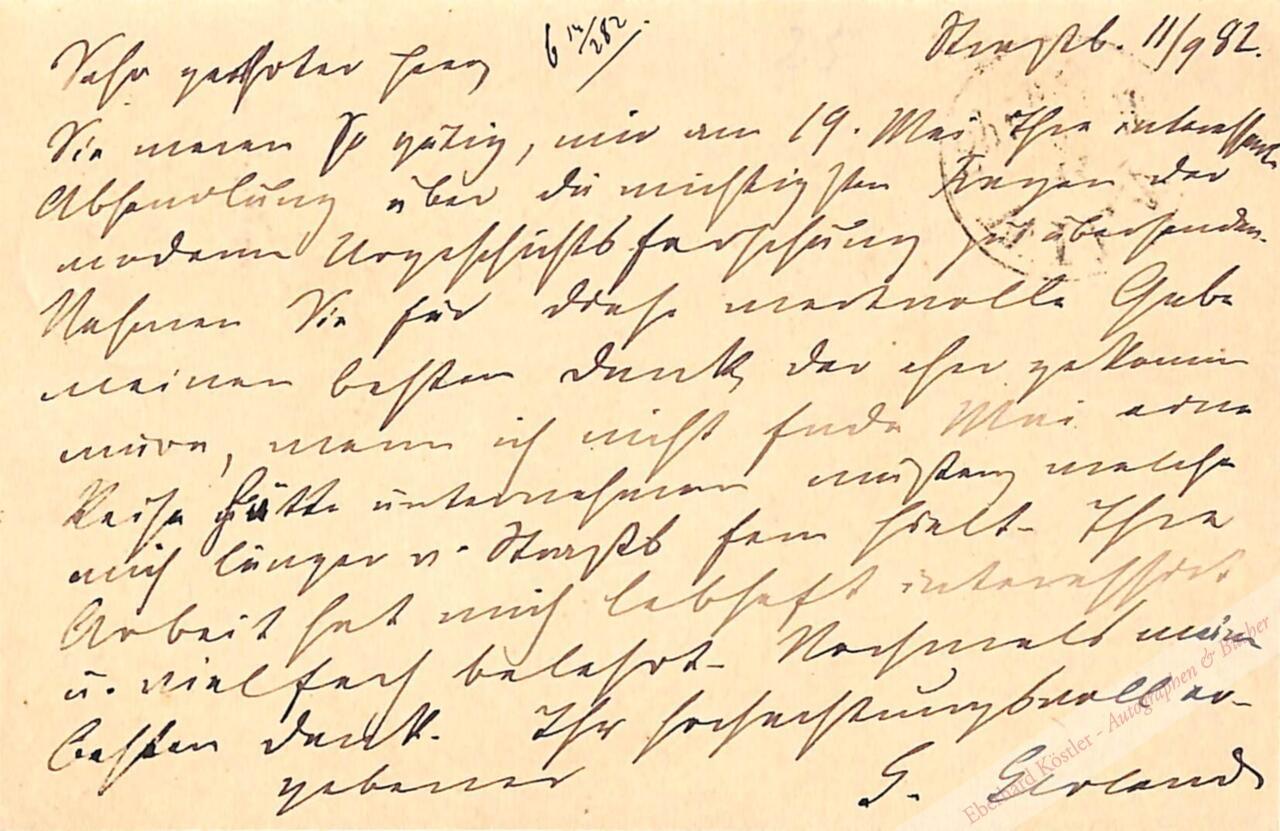 Straßb. 11/9 82.
Sehr geehrter Herr
Sie waren so gütig, mir am 19. Mai Ihre interessante
Abhandlung über die wichtigsten Fragen der
modernen Urgeschichtsforschung zu übersenden.
Nehmen Sie für diese wertvolle Gabe
meinen besten Dank, der eher gekommen
wäre, wenn ich nicht Ende Mai eine
Reise hätte unternehmen müssen, welche
mich länger v. Straßb fern hielt. Ihre
Arbeit hat mich lebhaft interessirt
u. vielfach belehrt. Nochmals meinen
besten Dank. Ihr hochachtungsvoll er-
gebener
G. Gerland
Eberhard Köstler - Autographen & Bücher